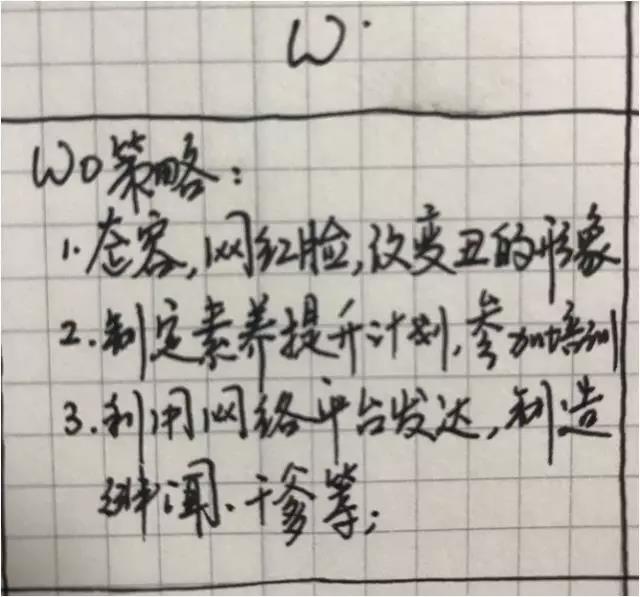 W.
WO策略:
1.整容,网红脸,改变丑的形象
2.制定素养提升计划,参加培训
3.利用网络平台发达,制造
绯闻、干爹等;